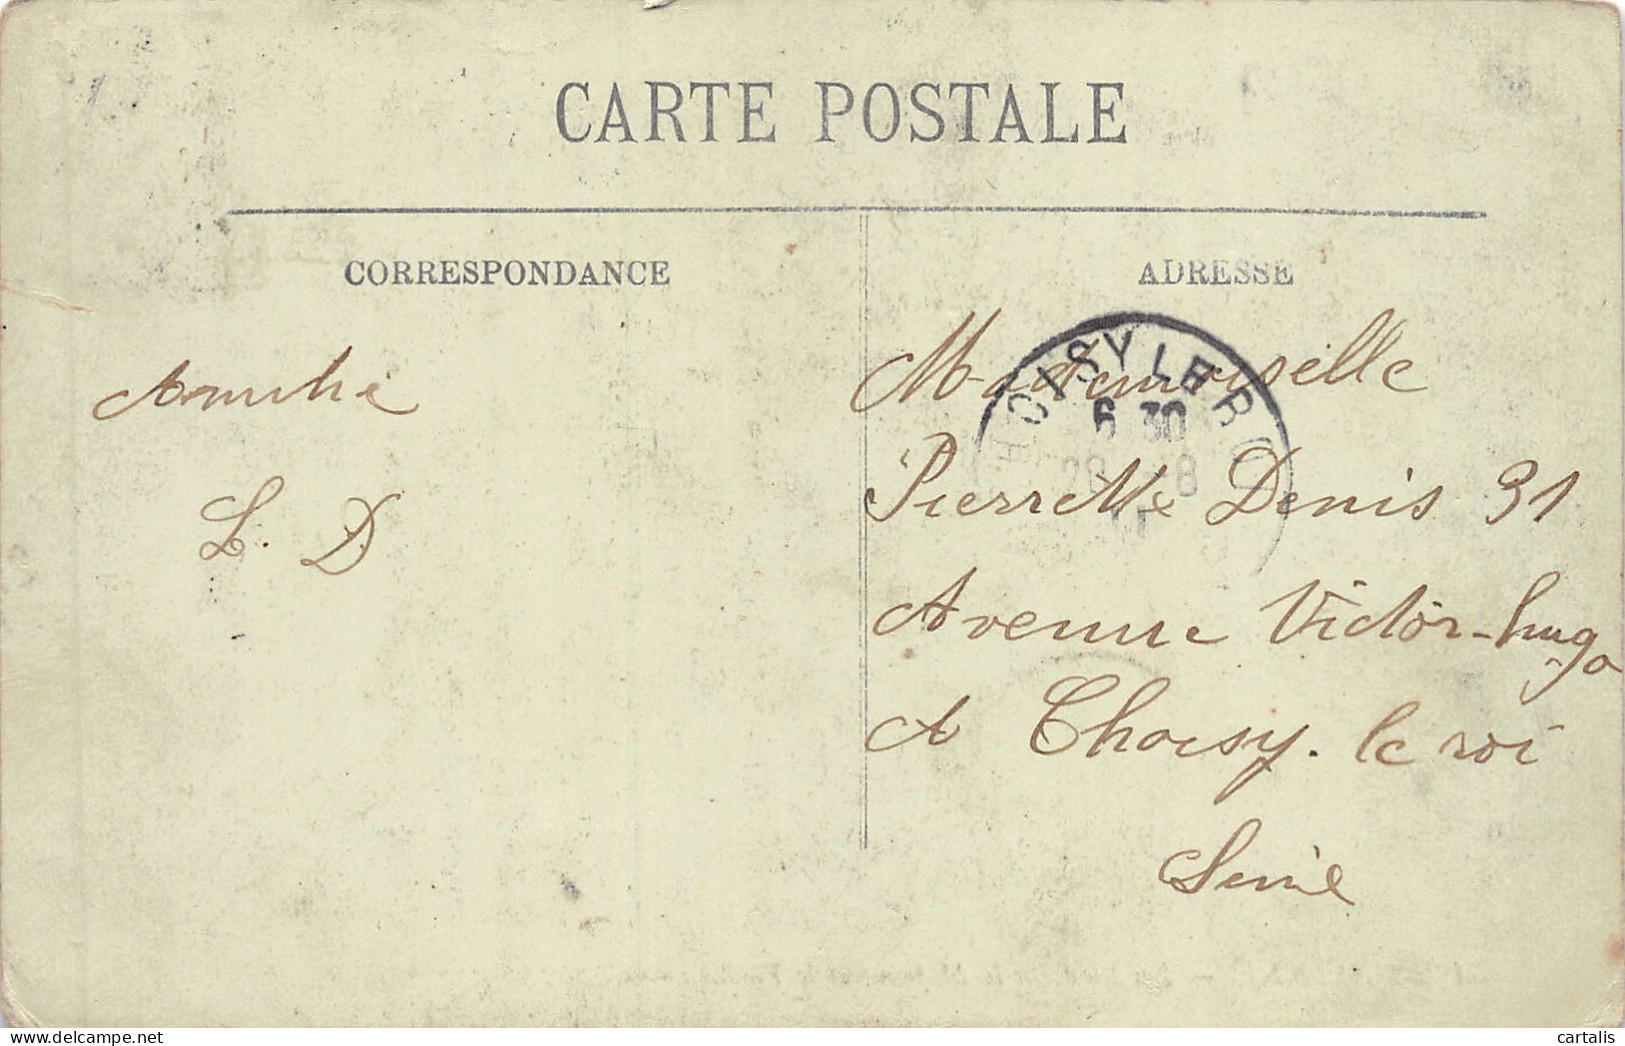 CARTE POSTALE
CORRESPONDANCE
ADRESSE
Amitié
L. D
Mademoiselle
Pierrette Denis 31
Avenue Victor-hugo
A Choisy. le roi
Seine
CHOISY LE R
6 30
28 8
11
cartalis